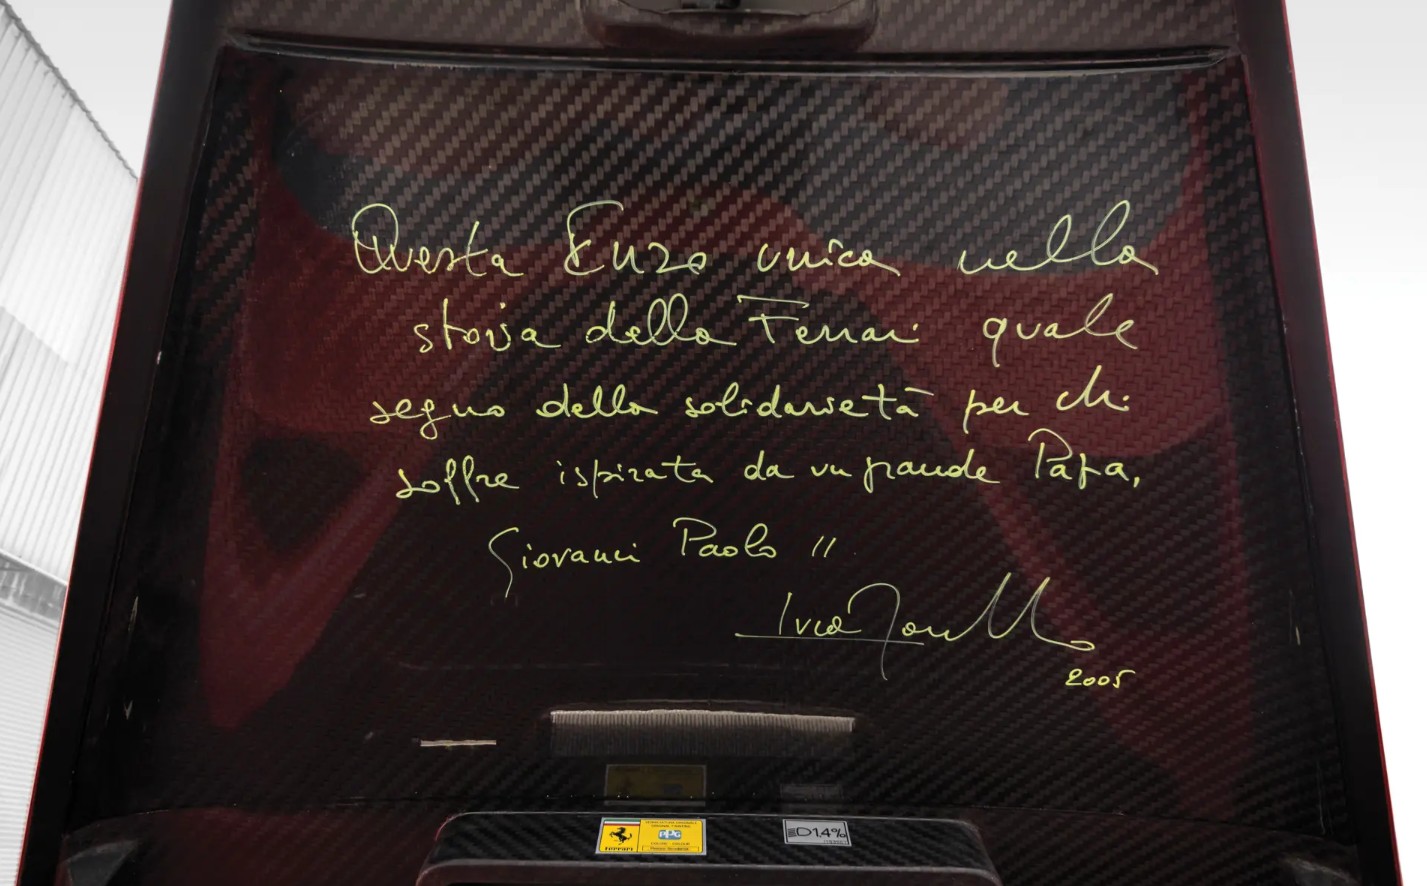 Questa Enzo unica nella
storia della Ferrari quale
segno della solidarietà per chi
soffre ispirata da un grande Papa,
Giovanni Paolo II
Luca
2005
Ferrari
PPG
D1.4%